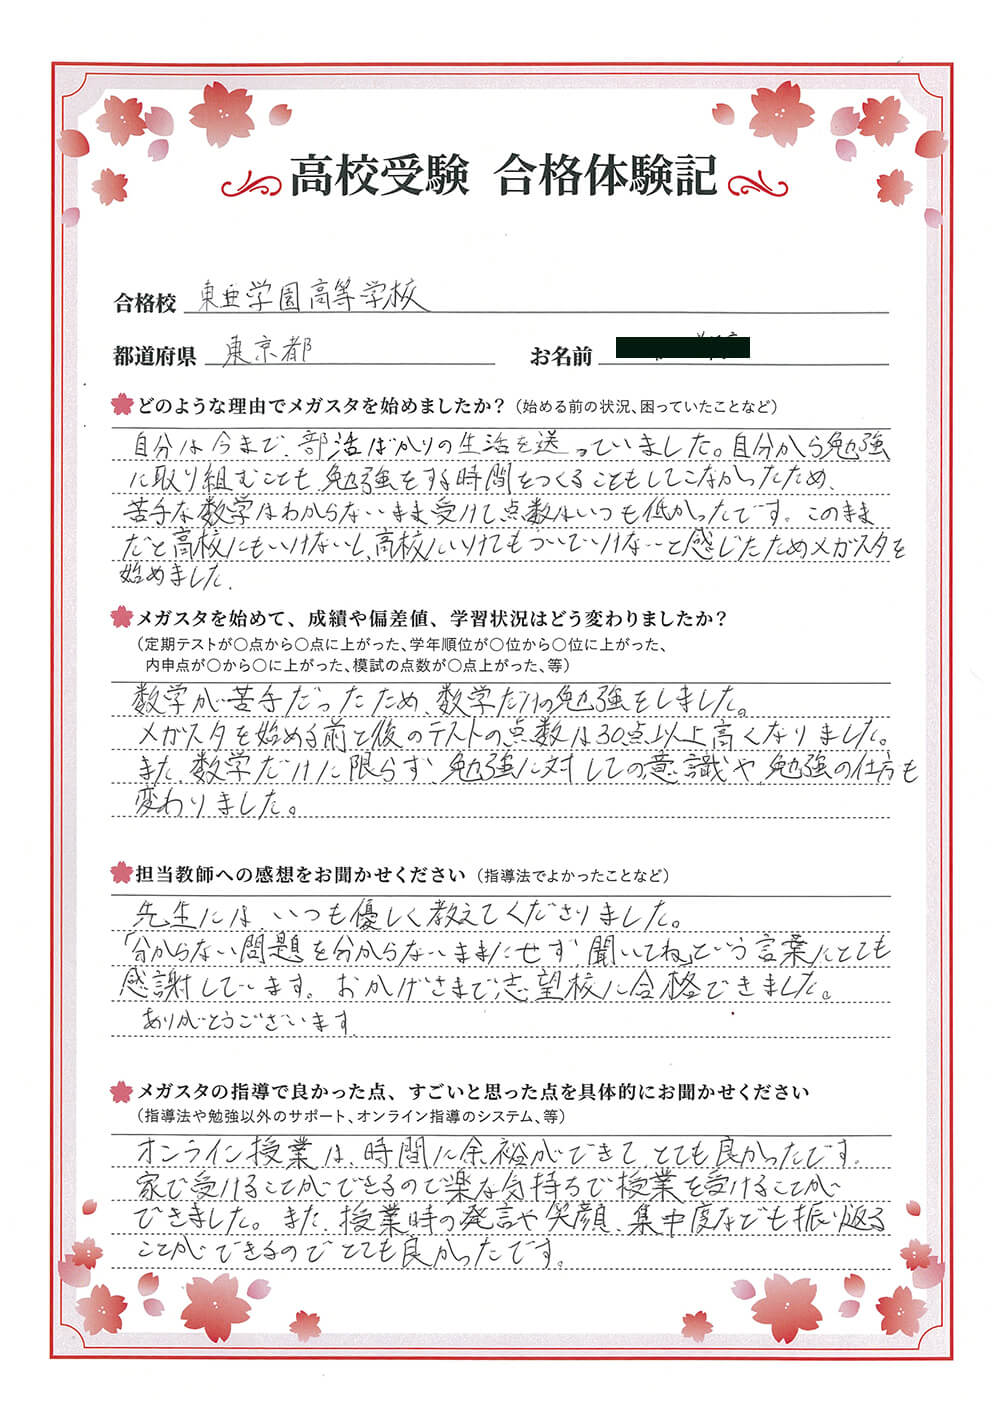 高校受験 合格体験記
合格校 東亜学園高等学校
都道府県 東京都 お名前
どのような理由でメガスタを始めましたか？（始める前の状況、困っていたことなど）
自分は今まで、部活ばかりの生活を送っていました。自分から勉強
に取り組むことも、勉強をする時間をつくることもしてこなかったため、
苦手な数学はわからないまま受けて点数はいつも低かったです。このまま
だと高校にもいけないし、高校にいけてもついていけないと感じたためメガスタを
始めました.
メガスタを始めて、成績や偏差値、学習状況はどう変わりましたか？
（定期テストが〇点から〇点に上がった、学年順位が〇位から〇位に上がった、
内申点が〇から〇に上がった、模試の点数が〇点上がった、等）
数学が苦手だったため、数学だけの勉強をしました。
メガスタを始める前と後のテストの点数は30点以上高くなりました。
また、数学だけに限らず 勉強に対しての意識や、勉強の仕方も
変わりました。
担当教師への感想をお聞かせください（指導法でよかったことなど）
先生には、いつも優しく教えてくださりました。
「分からない問題を分からないままにせず 聞いてね」という言葉にとても
感謝しています。おかげさまで志望校に合格できました。
ありがとうございます.
メガスタの指導で良かった点、すごいと思った点を具体的にお聞かせください
（指導法や勉強以外のサポート、オンライン指導のシステム、等）
オンライン授業は、時間に余裕ができて とても良かったです。
家で受けることができるので楽な気持ちで授業を受けることが
できました。また、授業時の発言や笑顔、集中度なども振り返る
ことができるのでとても良かったです。